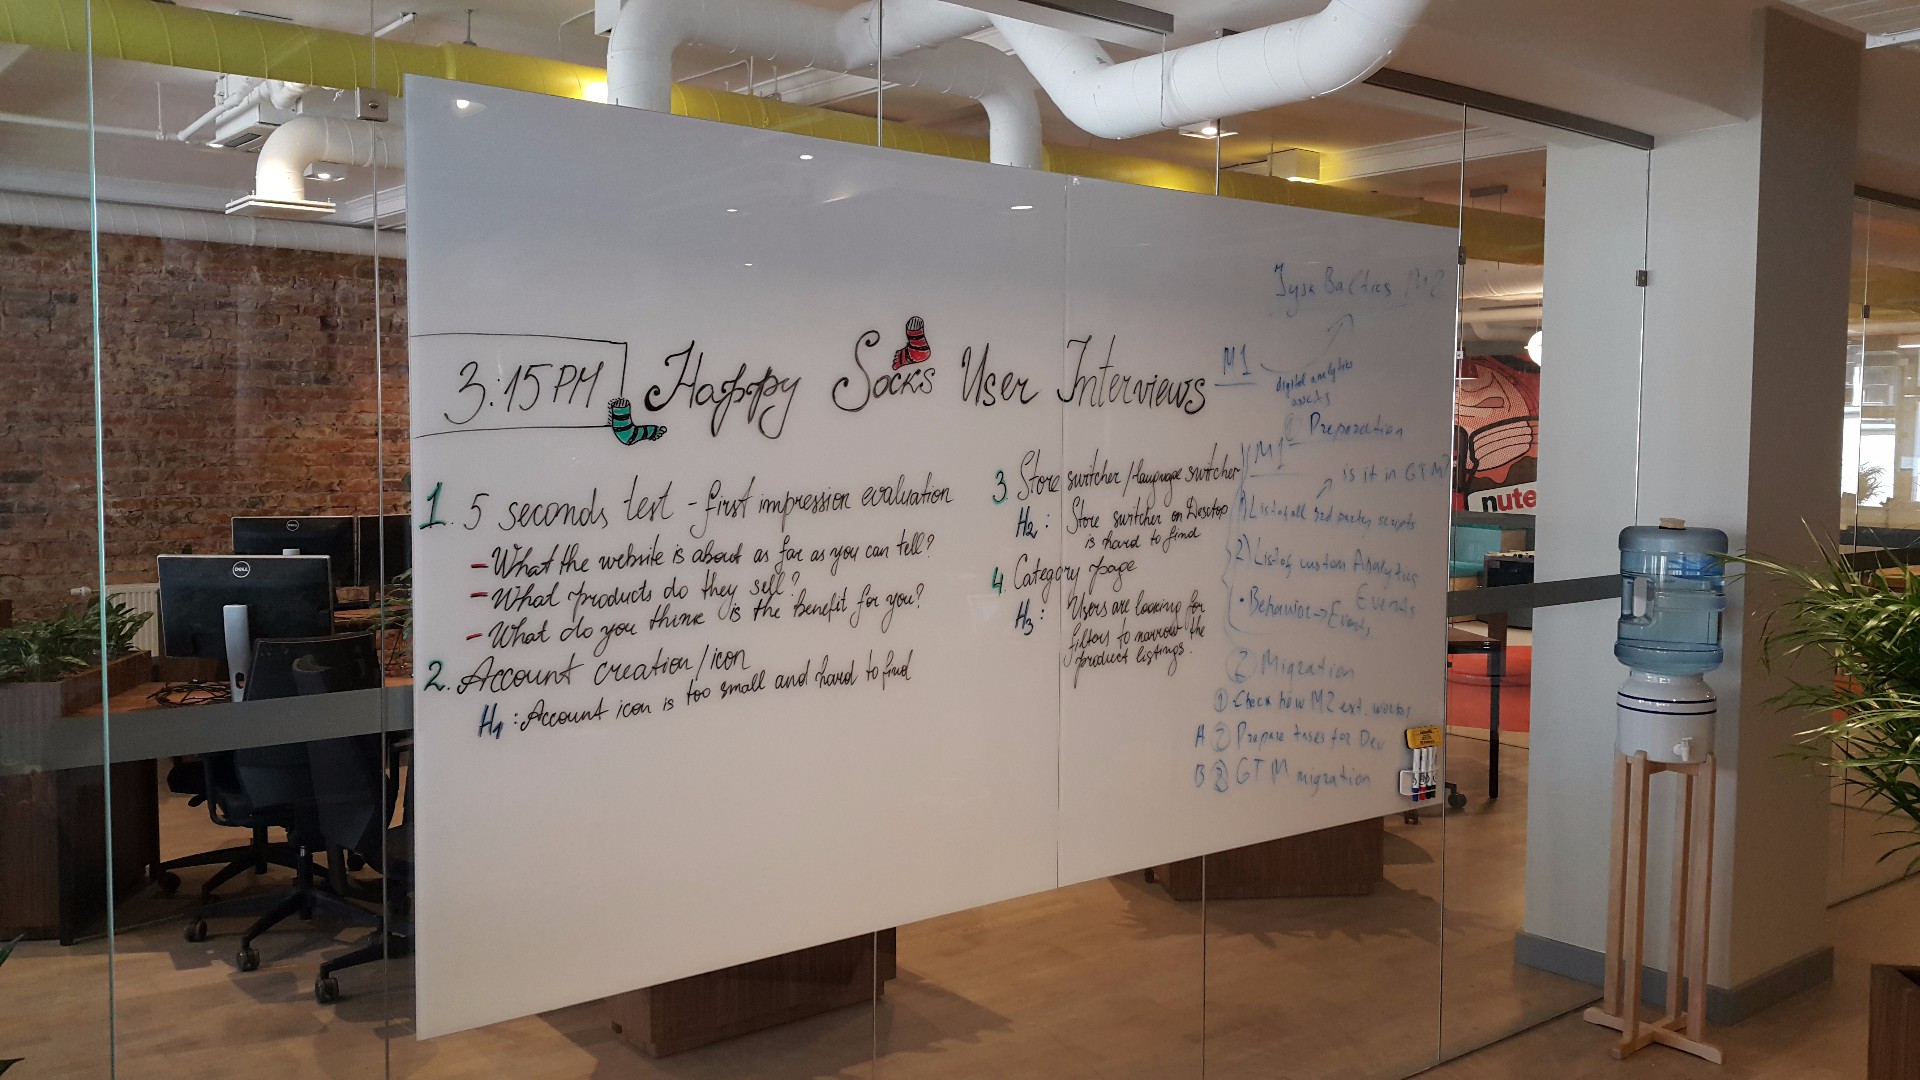 3:15PM Happy Socks User Interviews
1. 5 seconds test - first impression evaluation
- What the website is about as far as you can tell?
- What products do they sell?
- What do you think is the benefit for you?
2. Account creation/icon
H1: Account icon is too small and hard to find
3. Store switcher/language switcher
H2: Store switcher on Desctop
is hard to find
4. Category page
H3: Users are looking for
filters to narrow the
product listings.
Jysk Baltics M2
M1
digital analytics
1 Preparation
M1
is it in GTM?
1) List of all 3rd party scripts
2) List of custom Analytics
Events
• Behavior → Events
2 Migration
1 Check how M2 ext. works
A 2 Prepare tasks for Dev
B 3 GTM migration
DELL
DELL
nute